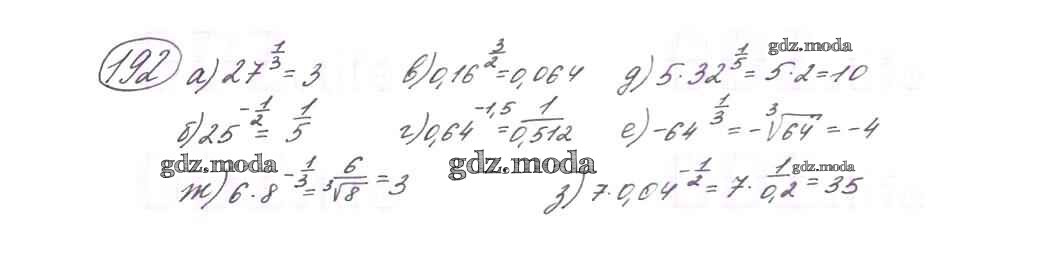 192 а) 27^(1/3) = 3 в) 0,16^(3/2) = 0,064 д) 5·32^(1/5) = 5·2 = 10 gdz.moda
б) 25^(-1/2) = 1/5 г) 0,64^(-1,5) = 1/0,512 е) -64^(1/3) = -∛64 = -4
gdz.moda gdz.moda gdz.moda
ж) 6·8^(-1/3) = 6/∛8 = 3 з) 7·0,04^(-1/2) = 7·1/0,2 = 35